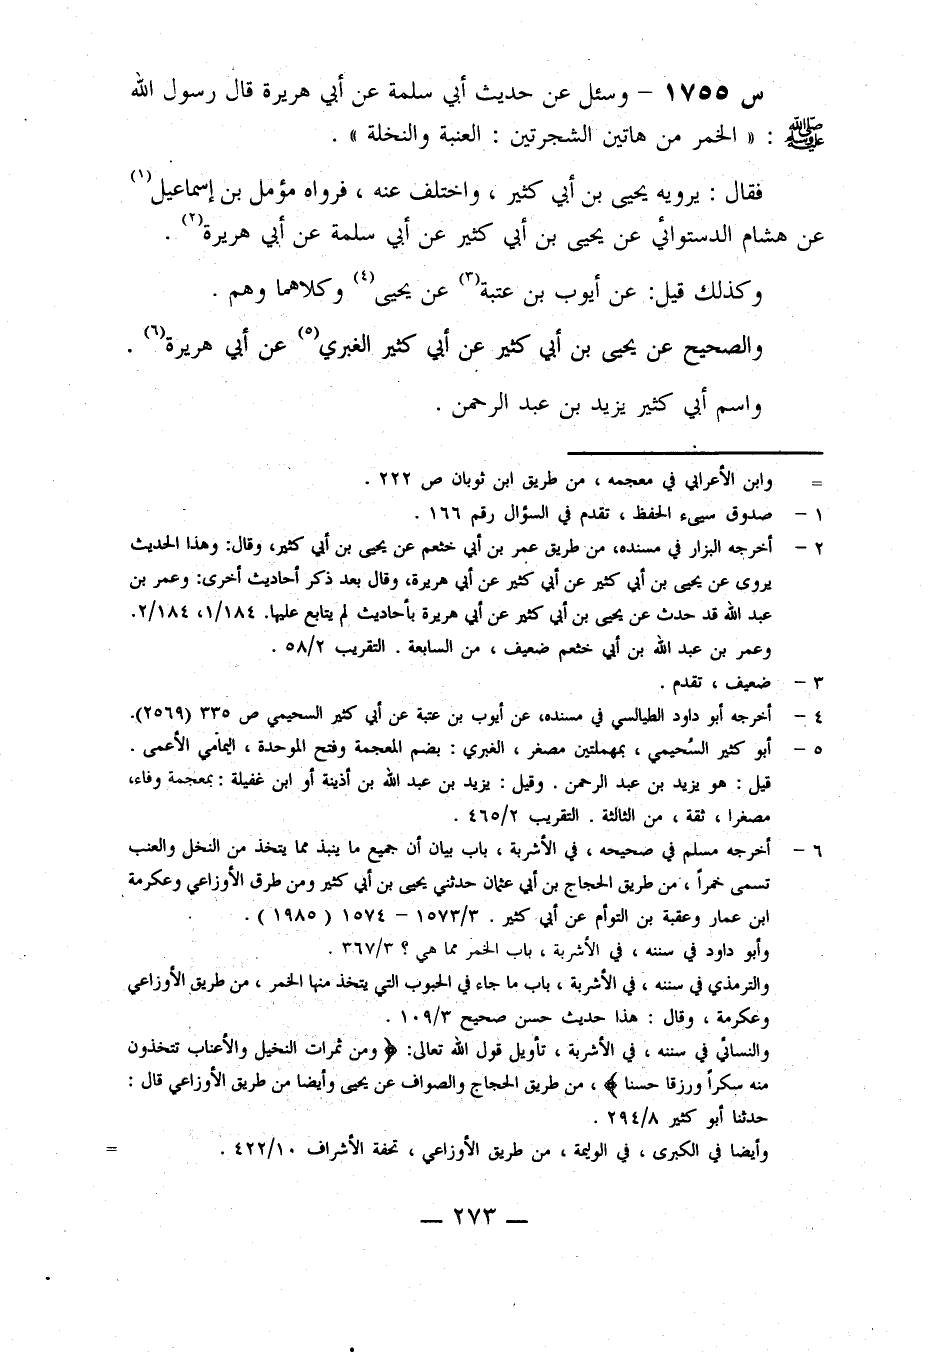 س ١٧٥٥ – وسئل عن حديث أبي سلمة عن أبي هريرة قال رسول الله
ﷺ : « الخمر من هاتين الشجرتين : العنبة والنخلة » .
فقال : يرويه يحيى بن أبي كثير ، واختلف عنه ، فرواه مؤمل بن إسماعيل(١)
عن هشام الدستوائي عن يحيى بن أبي كثير عن أبي سلمة عن أبي هريرة(٢) .
وكذلك قيل: عن أيوب بن عتبة(٣) عن يحيى(٤) وكلاهما وهم .
والصحيح عن يحيى بن أبي كثير عن أبي كثير الغبري(٥) عن أبي هريرة(٦) .
واسم أبي كثير يزيد بن عبد الرحمن .
= وابن الأعرابي في معجمه ، من طريق ابن ثوبان ص ٢٢٢ .
١ – صدوق سيىء الحفظ ، تقدم في السؤال رقم ١٦٦ .
٢ – أخرجه البزار في مسنده، من طريق عمر بن أبي خثعم عن يحيى بن أبي كثير، وقال: وهذا الحديث
يروى عن يحيى بن أبي كثير عن أبي كثير عن أبي هريرة، وقال بعد ذكر أحاديث أخرى: وعمر بن
عبد الله قد حدث عن يحيى بن أبي كثير عن أبي هريرة بأحاديث لم يتابع عليها. ١/١٨٤، ٢/١٨٤.
وعمر بن عبد الله بن أبي خثعم ضعيف ، من السابعة . التقريب ٥٨/٢ .
٣ – ضعيف ، تقدم .
٤ – أخرجه أبو داود الطيالسي في مسنده، عن أيوب بن عتبة عن أبي كثير السحيمي ص ٣٣٥ (٢٥٦٩).
٥ – أبو كثير السُحيمي ، بمهملتين مصغر ، الغبري : بضم المعجمة وفتح الموحدة ، اليمامي الأعمى .
قيل : هو يزيد بن عبد الرحمن . وقيل : يزيد بن عبد الله بن أذينة أو ابن غفيلة : بمعجمة وفاء،
مصغرا ، ثقة ، من الثالثة . التقريب ٤٦٥/٢ .
٦ – أخرجه مسلم في صحيحه ، في الأشربة ، باب بيان أن جميع ما ينبذ مما يتخذ من النخل والعنب
تسمى خمراً ، من طريق الحجاج بن أبي عثمان حدثني يحيى بن أبي كثير ومن طرق الأوزاعي وعكرمة
ابن عمار وعقبة بن التوأم عن أبي كثير . ١٥٧٣/٣ – ١٥٧٤ ( ١٩٨٥ ) .
وأبو داود في سننه ، في الأشربة ، باب الخمر مما هي ؟ ٣٦٧/٣ .
والترمذي في سننه ، في الأشربة ، باب ما جاء في الحبوب التي يتخذ منها الخمر ، من طريق الأوزاعي
وعكرمة ، وقال : هذا حديث حسن صحيح ١٠٩/٣ .
والنسائي في سننه ، في الأشربة ، تأويل قول الله تعالى: ﴿ ومن ثمرات النخيل والأعناب تتخذون
منه سكراً ورزقا حسنا ﴾ ، من طريق الحجاج والصواف عن يحيى وأيضا من طريق الأوزاعي قال :
حدثنا أبو كثير ٢٩٤/٨ .
وأيضا في الكبرى ، في الوليمة ، من طريق الأوزاعي ، تحفة الأشراف ٤٢٢/١٠ . =
— ٢٧٣ —